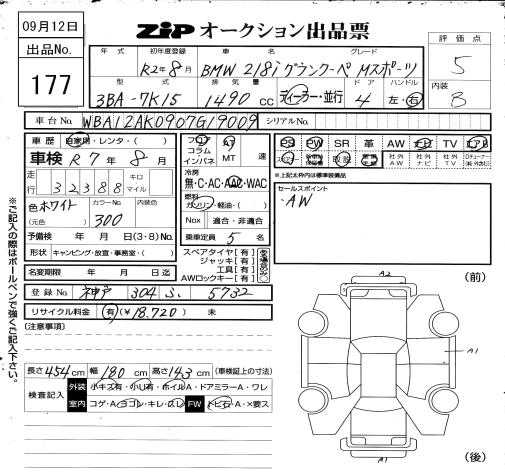 09月12日
出品No.
177
ZIP オークション出品票
評価点
5
内装
B
年式 初年度登録 車名 グレード
R2年8月 BMW 218i グランクーペ Mスポーツ
型式 排気量 ドア ハンドル
3BA-7K15 1490cc ディーラー・並行 4 左・右
車台No. WBA12AK0907G19009 シリアルNo.
車歴 自家用・レンタ・( )
車検 R7年8月
走行 32388 キロ マイル
色 ホワイト (元色) カラーNo. 300 内装色
予備検 年 月 日(3・8)No.
形状 キャンピング・放宣・事務室・( )
名変期限 年 月 日迄
フロア コラム インパネ AT MT 速
冷房 無・C・AC・AAC・WAC
燃料 ガソリン・軽油・( )
Nox 適合・非適合
乗車定員 5 名
スペアタイヤ[有]
ジャッキ[有]
工具[有]
AWロックキー[有]
PS PW SR 革 AW ナビ TV エアB
取説 社外AW 社外ナビ 社外TV
※上記太枠内は標準装備品
セールスポイント
・AW
登録No. 神戸 304 ふ 5732
リサイクル料金 有(¥18.720) 未
(注意事項)
長さ454cm 幅180cm 高さ143cm (車検証上の寸法)
検査記入 外装 小キズ有・小凹有・ホイルA・ドアミラーA・ワレ
室内 コゲ・A・ヨゴレ・キレ・スレ FW トビ石・A・X要ス
※ご記入の際はボールペンで強くご記入下さい。
(前)
A2
A1
A1
(後)